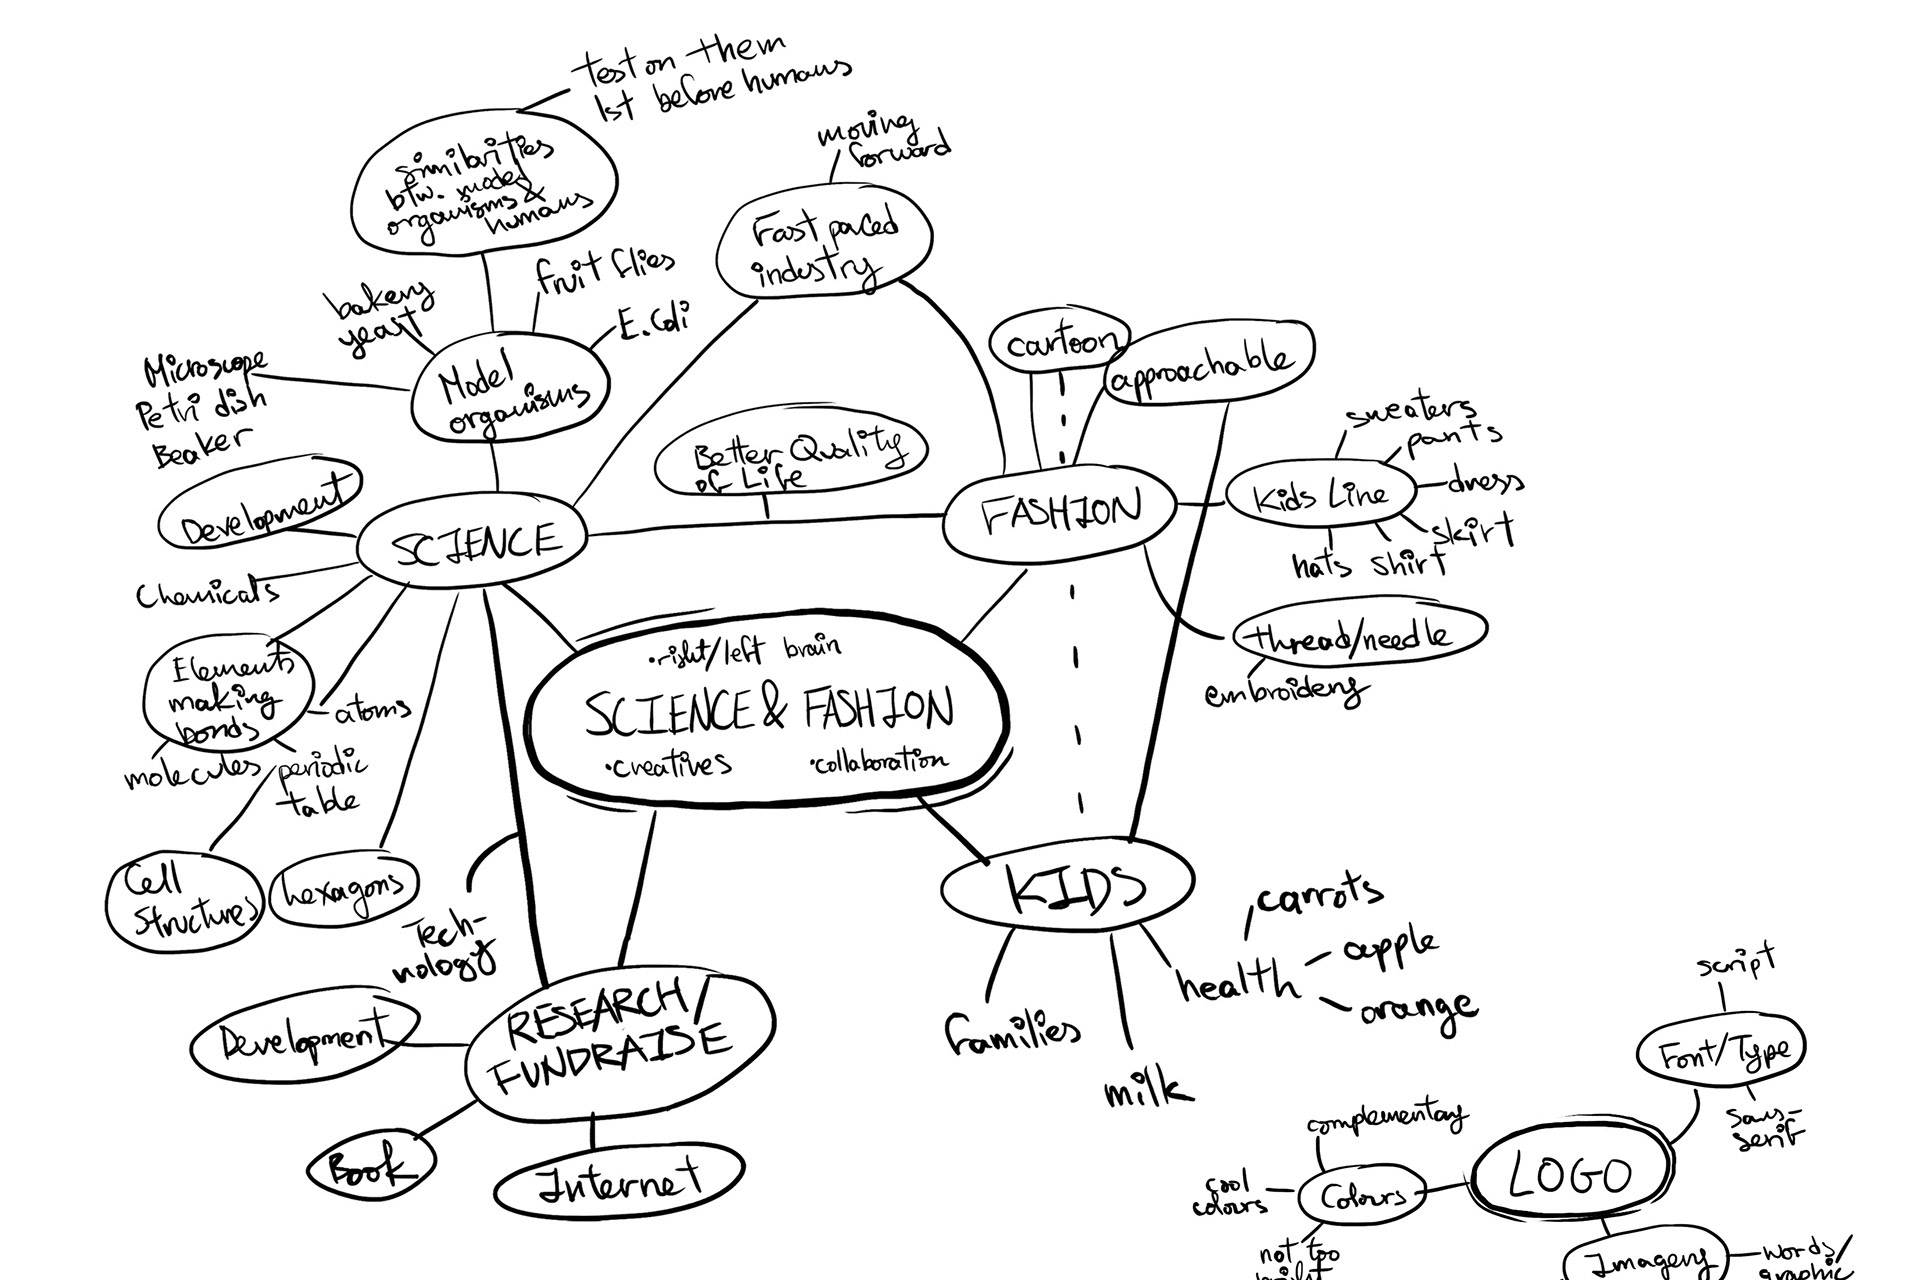 test on them
1st before humans
similarities
btw. model
organisms &
humans
moving
forward
Fast paced
industry
bakery
yeast
fruit flies
E.Coli
Microscope
Petri dish
Beaker
Model
organisms
cartoon
approachable
Better Quality
of Life
sweaters
pants
Kids Line
dress
skirt
hats shirt
Development
SCIENCE
FASHION
Chemicals
thread/needle
embroidery
Elements
making
bonds
atoms
molecules
periodic
table
•right/left brain
SCIENCE & FASHION
•creatives •collaboration
Cell
Structures
hexagons
Tech-
nology
KIDS
carrots
apple
health
orange
families
milk
RESEARCH/
FUNDRAISE
Development
Book
Internet
script
Font/Type
sans-
serif
complementary
LOGO
cool
colours
Colours
not too
bright
Imagery
words/
graphic